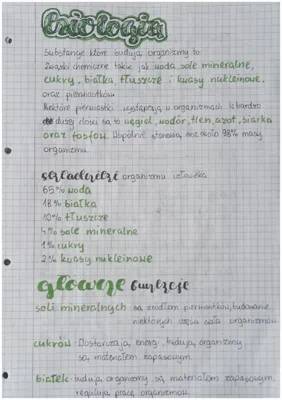 biologia
Substancje które budują organizmy to
Związki chemiczne takie jak woda, sole mineralne,
cukry, białka, tłuszcze i kwasy nukleinowe,
oraz pierwiastki.
Niektóre pierwiastki występują w organizmach w bardzo
dużej ilości są to węgiel, wodór, tlen, azot, siarka
oraz fosfor. Wspólnie stanowią one około 98% masy
organizmu.
organizmu człowieka
65% woda
18% białka
10% tłuszcze
4% sole mineralne
1% cukry
2% kwasy nukleinowe
główne funkcje
soli mineralnych są źródłem pierwiastków, budowanie
niektórych części ciała organizmów
cukrów Dostarczają energii, budują organizmy
są materiałem zapasowym.
białek- budują organizmy, są materiałem zapasowym,
regulują pracę organizmów.